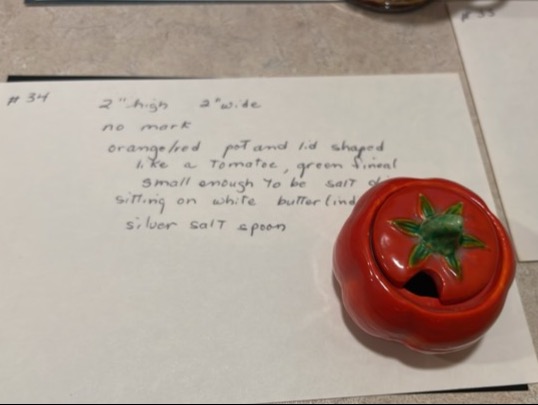 # 34
2" high 2" wide
no mark
orange/red pot and lid shaped
like a Tomatoe, green fineal
small enough to be salt
sitting on white butter (ind
silver salt spoon